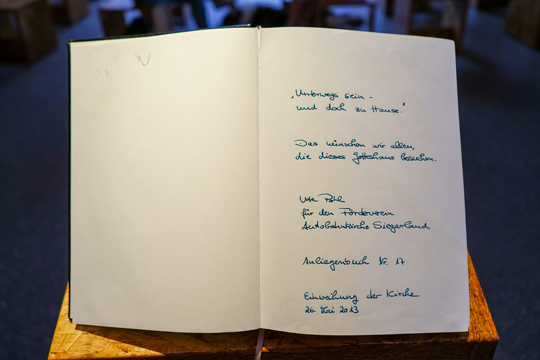 „Unterwegs sein -
und doch zu Hause."
Das wünschen wir allen,
die dieses Gotteshaus besuchen.
Ute
für den Förderverein
Autobahnkirche Siegerland
Anliegenbuch Nr. 17
Einweihung der Kirche
26. Mai 2013